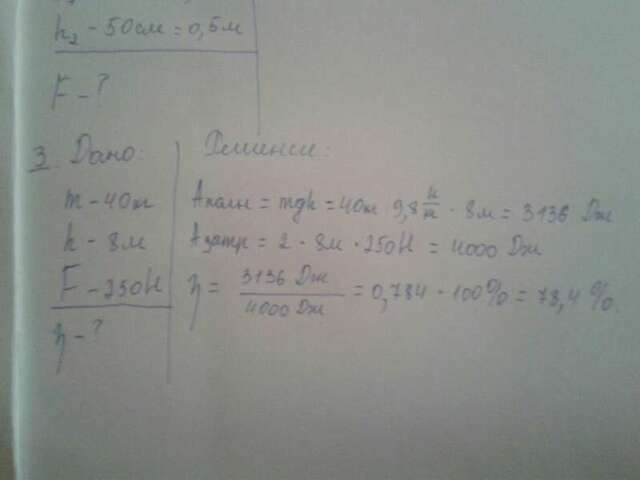 h₂ - 50см = 0,5м
F - ?
3. Дано:
m - 40кг
h - 8м
F - 250Н
η - ?
Решение:
Aполн = mgh = 40кг 9,8 Н/кг · 8м = 3136 Дж
Aзатр = 2 · 8м · 250Н = 4000 Дж
η = 3136 Дж / 4000 Дж = 0,784 · 100% = 78,4 %.